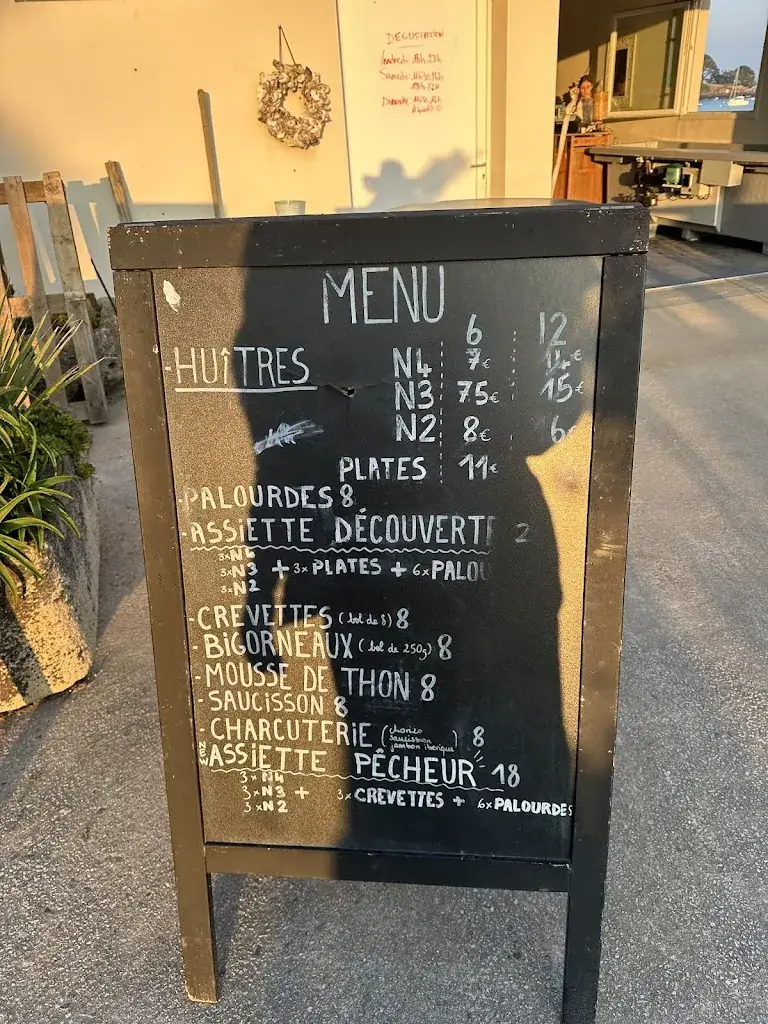 DEGUSTATION
MENU
6 12
- HUîTRES N4 7€ 14€
N3 75€ 15€
N2 8€ 6
PLATES 11€
- PALOURDES 8
- ASSiETTE DÉCOUVERTE 2
3xN4
3xN3 + 3x PLATES + 6x PALOU
3xN2
- CREVETTES (bol de 8) 8
- BiGORNEAUX (bol de 250g) 8
- MOUSSE DE THON 8
- SAUCiSSON 8
- CHARCUTERiE (chorizo saucisson jambon iberique) 8
NEW ASSiETTE PÊCHEUR 18
3xN4
3xN3 + 3x CREVETTES + 6x PALOURDES
3xN2